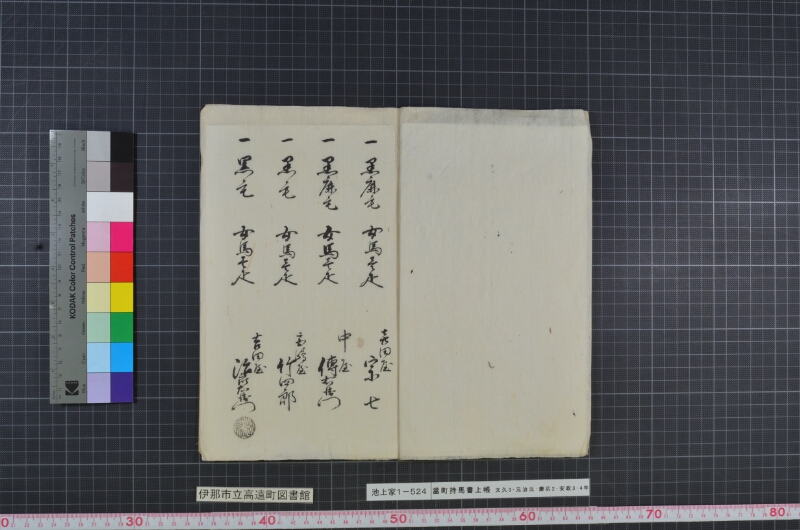 一 黒鹿毛 女馬壱疋
吉田屋
宗七
一 黒鹿毛 女馬壱疋
中屋
傳右衛門
一 黒毛 女馬壱疋
屋
竹四郎
一 黒毛 女馬壱疋
吉田屋
右衛門
KODAK Color Control Patches
Kodak
伊那市立高遠町図書館
池上家1-524
當町持馬書上帳 文久3・元治元・慶応2・安政3・4年
30
40
50
60
70
80